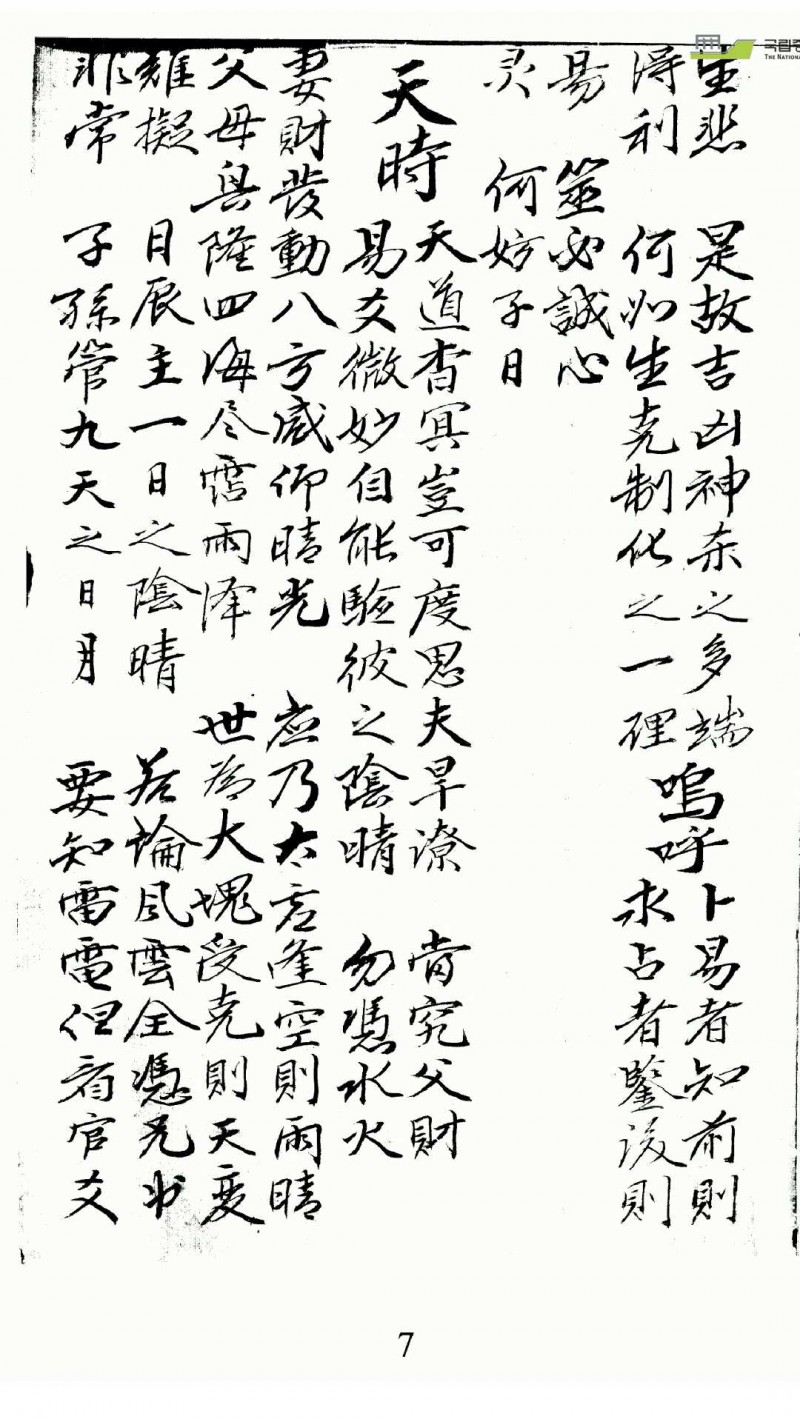 国립
THE NATIONA
生悲 是故吉凶神杀之多端 卜易者知前則
得利 何如生克制化之一理 求占者鑒後則
嗚呼
易 筮必誠心
灵 何妨子日
天時
天道杳冥豈可度思夫旱潦 當究父財
易爻微妙自能驗彼之陰晴 勿憑水火
妻財發動八方咸仰晴光 应乃太虛逢空則雨晴
父母興隆四海尽霑雨泽 世為大塊受克則天变
难擬 日辰主一日之陰晴 若論風雲全憑兄弟
非常 子孫管九天之日月 要知雷電但看官爻
7